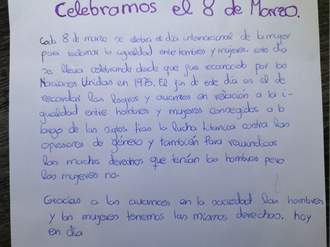 Celebramos el 8 de Marzo.
Cada 8 de marzo se celebra el día internacional de la mujer
para reclamar la igualdad entre hombres y mujeres. este día
se lleva celebrando desde que fue reconocido por las
Naciones Unidas en 1975. El fin de este día es el de
recordar los logros y avances en relación a la i-
gualdad entre hombres y mujeres conseguidos a lo
largo de los siglos tras la lucha titanica contra los
opresores de género y también para reivindicar
los muchos derechos que tenían los hombres pero
las mujeres no.
Gracias a los avances en la sociedad los hombres
y las mujeres tenemos los mismos derechos. hoy
en día